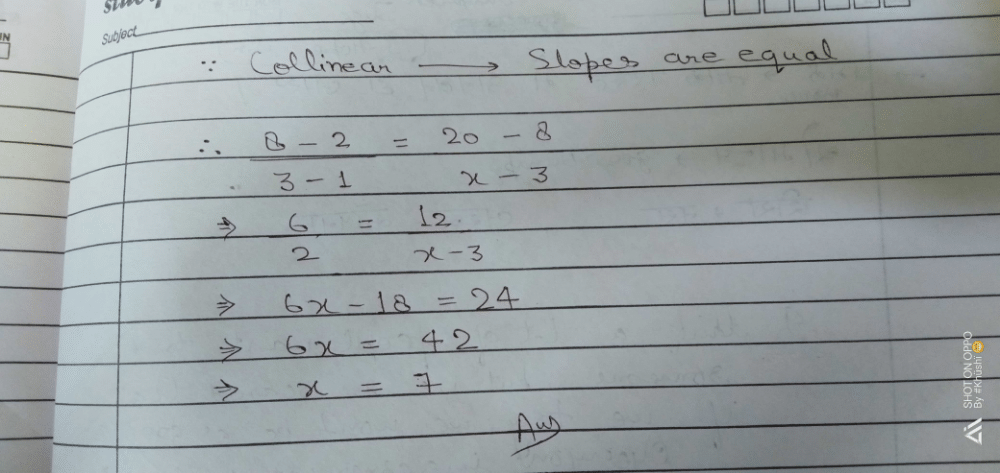 Subject
IN
∵ Collinear ⟶ Slopes are equal
∴ 8 - 2 = 20 - 8
3 - 1 x - 3
⇒ 6 = 12
2 x - 3
⇒ 6x - 18 = 24
⇒ 6x = 42
⇒ x = 7
Ans
SHOT ON OPPO
By #Khushi😊